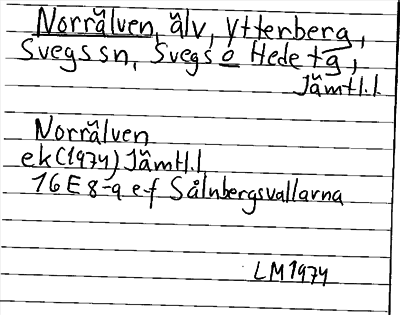 Norrälven, älv, Ytterberg,
Svegs sn, Svegs o Hede tg,
Jämtl.l.
Norrälven
ek (1974) Jämtl.l
16E 8-9 e-f Sålnbergsvallarna
LM 1974